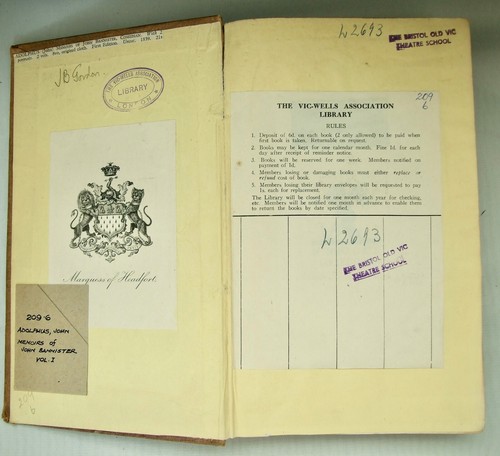 ADOLPHUS, John: Memoirs of JOHN BANNISTER, Comedian. With 2
2 vols. 8vo, original cloth. First Edition. 1839. 21s
J B Gordon
THE VIC-WELLS ASSOCIATION
LIBRARY
LONDON
Marquess of Headfort.
209.6
ADOLPHUS, JOHN
MEMOIRS OF
JOHN BANNISTER
VOL. I
209
6
L2693
THE BRISTOL OLD VIC
THEATRE SCHOOL
209
6
THE VIC-WELLS ASSOCIATION
LIBRARY
RULES
1. Deposit of 6d. on each book (2 only allowed) to be paid when
first book is taken. Returnable on request.
2. Books may be kept for one calendar month. Fine 1d. for each
day after receipt of reminder notice.
3. Books will be reserved for one week. Members notified on
payment of 1d.
4. Members losing or damaging books must either replace or
refund cost of book.
5. Members losing their library envelopes will be requested to pay
1s. each for replacement.
The Library will be closed for one month each year for checking,
etc. Members will be notified one month in advance to enable them
to return the books by date specified.
L2693
THE BRISTOL OLD VIC
THEATRE SCHOOL